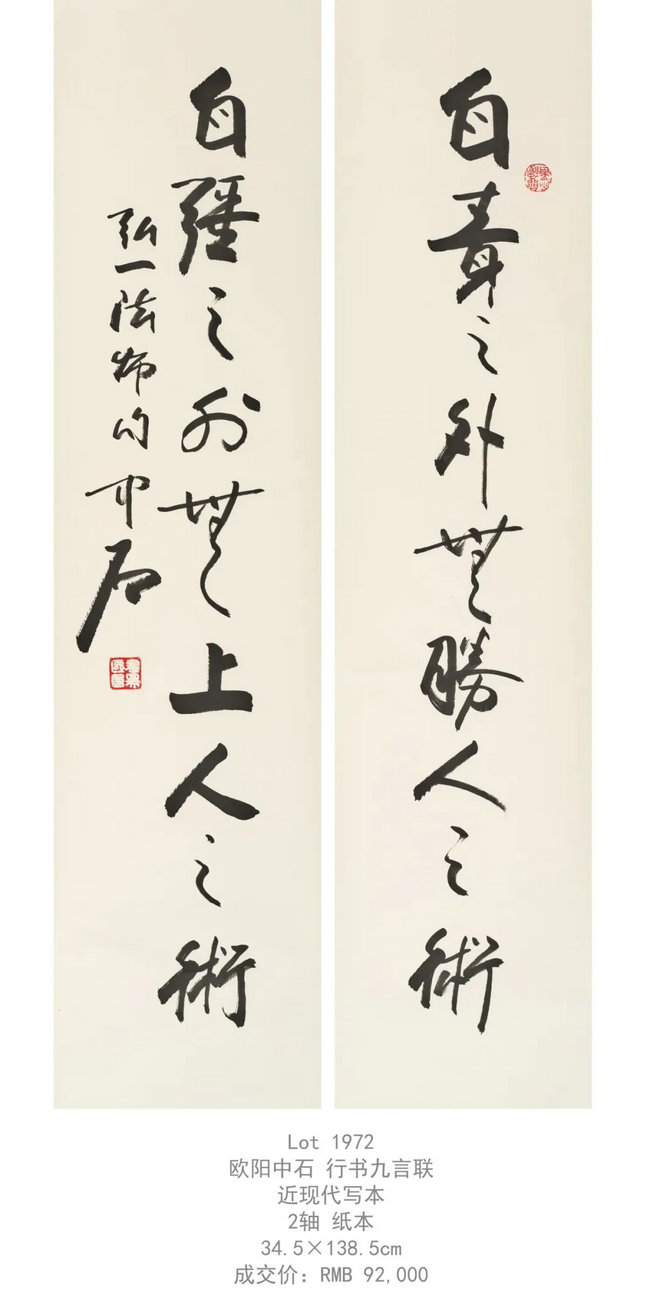 自責之外無勝人之術
自疆之外無上人之術
弘一法師句 中石
Lot 1972
欧阳中石 行书九言联
近现代写本
2轴 纸本
34.5×138.5cm
成交价：RMB 92,000